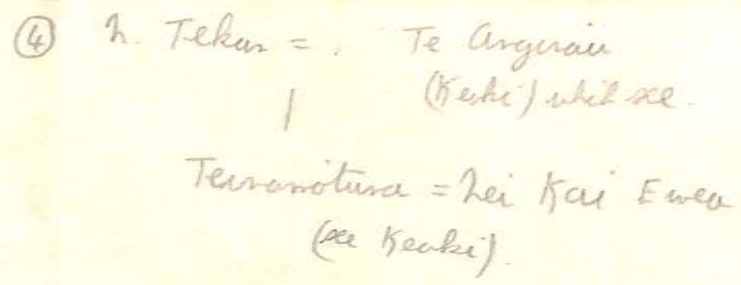 ④ N. Tekas = . Te Angirau
(Keaki) which see.
Teisanotusa = Nei Kai Ewea
(see Keaki).